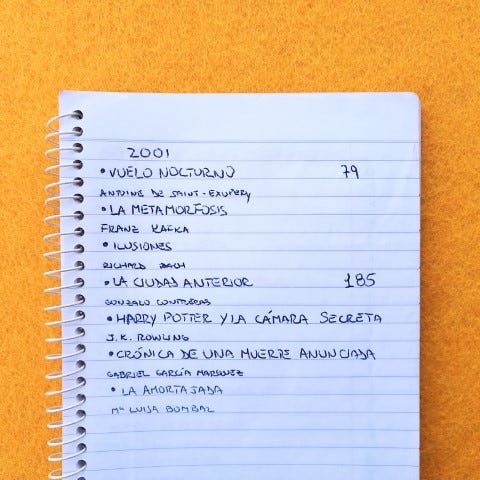 2001
• VUELO NOCTURNO 79
ANTOINE DE SAINT-EXUPERY
• LA METAMORFOSIS
FRANZ KAFKA
• ILUSIONES
RICHARD BACH
• LA CIUDAD ANTERIOR 185
GONZALO CONTRERAS
• HARRY POTTER Y LA CÁMARA SECRETA
J.K. ROWLING
• CRÓNICA DE UNA MUERTE ANUNCIADA
GABRIEL GARCÍA MARQUEZ
• LA AMORTAJADA
Mª LUISA BOMBAL